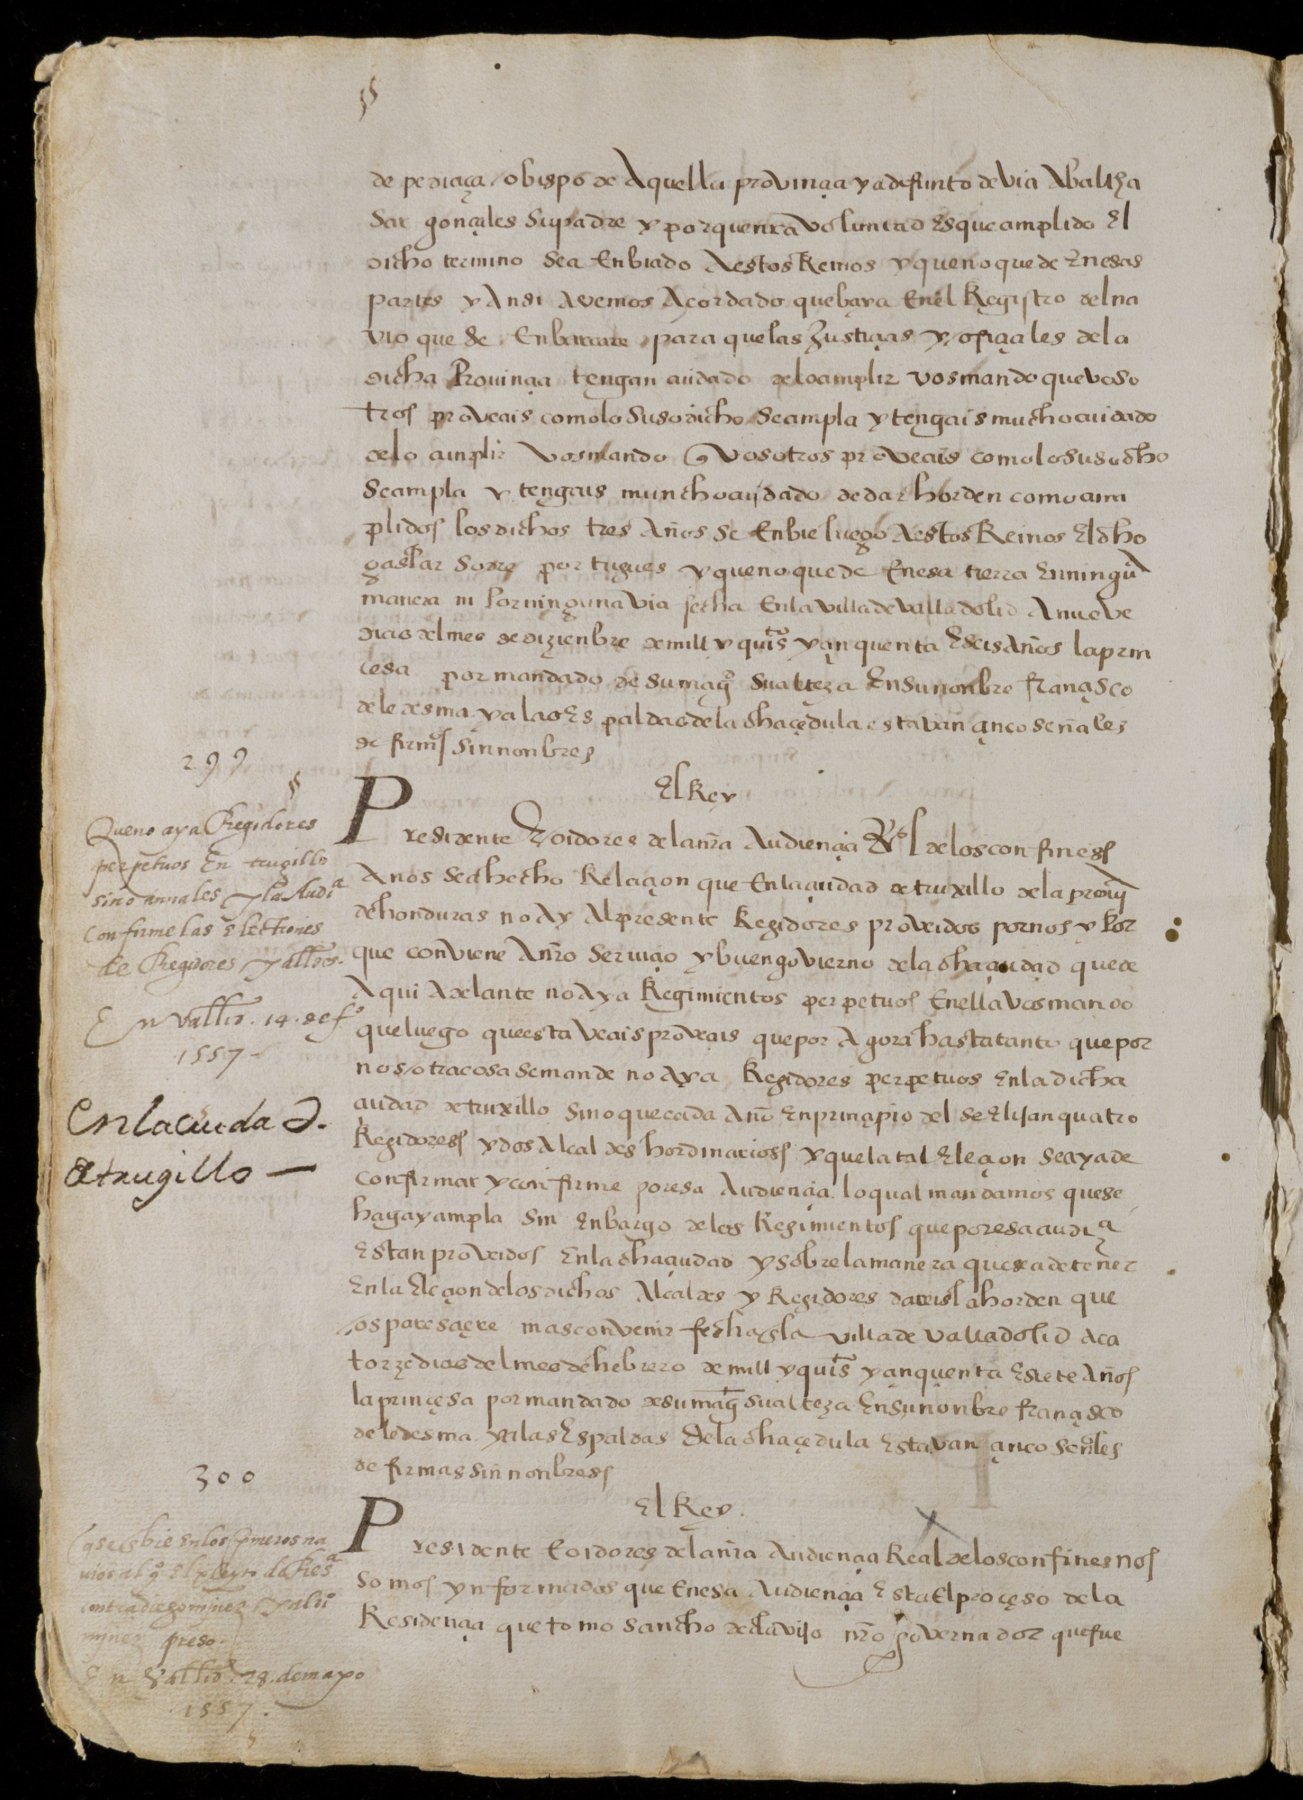 de pedraça obispo de Aquella provinçia ya difunto devia A baltha
sar gonçales su padre y porque nra voluntad es que cumplido El
dicho termino sea Enbiado A estos Reinos y que no quede En esas
partes y Ansi avemos Acordado que vaya En el Registro del na
vio que se Enbarcare para que las Justiçias y ofiçiales de la
dicha Provinçia tengan cuidado de lo cumplir vos mando que voso
tros proveais como lo susodicho se cumpla y tengais mucho cuidado
de lo cumplir vos mando q Vosotros proveais como lo susodho
se cumpla y tengais muncho cuidado de dar horden como cum
plidos los dichos tres Años se Enbie luego A estos Reinos El dho
gaspar portugues y que no quede En esa tierra En ningua
manera ni por ninguna via fecha En la villa de valladolid A nueve
dias del mes de dizienbre de mill y quis y çinquenta E seis Años la prin
cesa por mandado de su magd su alteza En su nonbre françisco
de ledesma y a las Espaldas de la dha çedula estavan çinco señales
de firmas sin nonbres
299
El Rey
Presidente E oidores de la nra Audiençia Rl de los confiness
A nos se a hecho Relaçion que En la çiudad de truxillo de la proviª
de honduras no Ay Al presente Regidores proveidos por nos y Por
que conviene A nro serviçio y buen govierno de la dha çiudad que de
Aqui Adelante no Aya Regimientos perpetuos En ella vos mando
que luego que esta veais proveais que por Agora hasta tanto que por
nos otra cosa se mande no Aya Regidores perpetuos En la dicha
çiudad de truxillo sino que cada Año En prinçipio del se Elijan quatro
Regidoress y dos Alcaldes hordinarioss y que la tal Eleçion se aya de
confirmar y confirme por esa Audiençia lo qual mandamos que se
haga y cumpla sin Enbargo de los Regimientos que por esa audiª
Estan proveidos En la dha çiudad y sobre la manera que se a de tener
En la Eleçion de los dichos Alcaldes y Regidores dareis la horden que
os paresçiere mas convenir fecha En la villa de valladolid A ca
torze dias del mes de hebrero de mill y quis y çinquenta E siete Años
la prinçesa por mandado de su magt su alteza En su nonbre françisco
de ledesma y a las Espaldas de la dha çedula Estavan çinco señales
de firmas sin nonbress
Que no aya Regidores
perpetuos En trugillo
sino annales y la Audiª
confirme las Electiones
de Regidores y alldes.
En Vallid. 14. de fº
1557
En la ciudad.
de trugillo
300
El Rey.
Presidente E oidores de la nra Audiençia Real de los confines nos
somos ynformados que En esa Audiençia Esta El proçeso de la
Residençia que tomo sancho de clavijo nro governador que fue
q se enbie En los primeros na
vios al qº El pleyto de Resª
contra diego
preso.
En Vallid. 28. de mayo
1557.